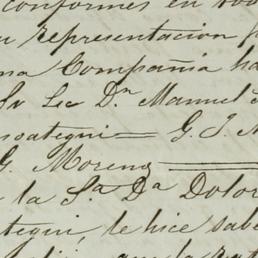 conformes en todo
representacion
ma Compañia ha
Sr Lic Dn Manuel
noategui = G. J.
G. Moreno =
a la Sa. Da Dolor
tegui, le hice sabe